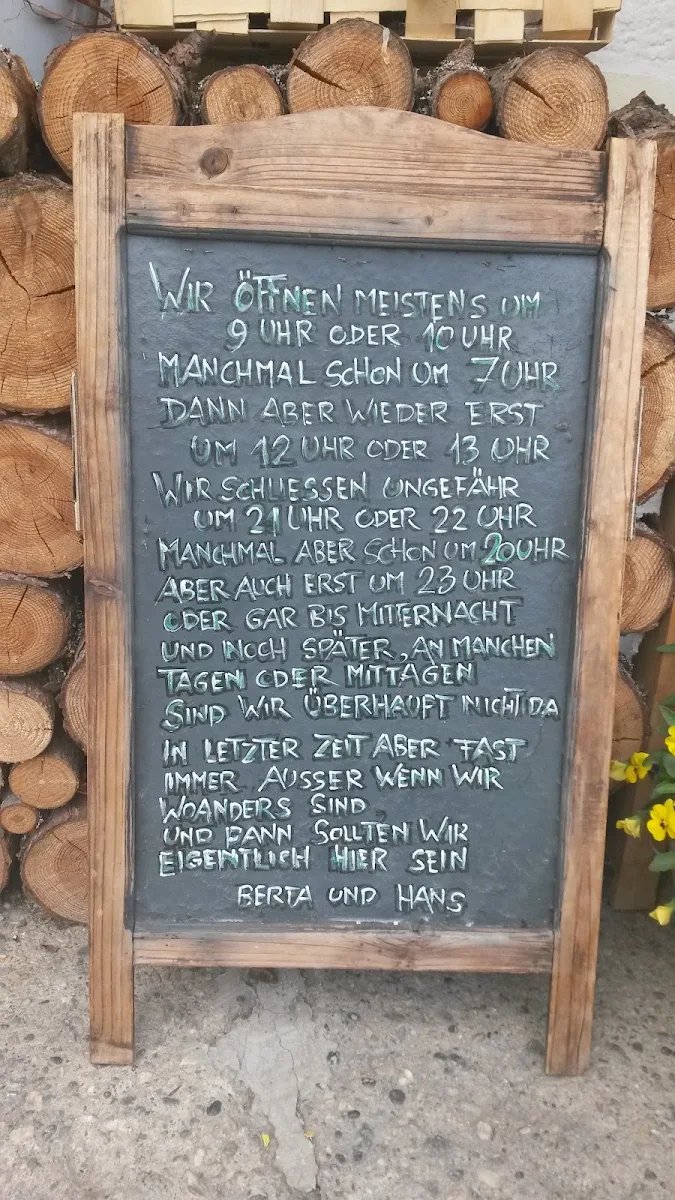 WIR ÖFFNEN MEISTENS UM
9 UHR ODER 10 UHR
MANCHMAL SCHON UM 7 UHR
DANN ABER WIEDER ERST
UM 12 UHR ODER 13 UHR
WIR SCHLIESSEN UNGEFÄHR
UM 21 UHR ODER 22 UHR
MANCHMAL ABER SCHON UM 20 UHR
ABER AUCH ERST UM 23 UHR
ODER GAR BIS MITTERNACHT
UND NOCH SPÄTER, AN MANCHEN
TAGEN ODER MITTAGEN
SIND WIR ÜBERHAUPT NICHT DA
IN LETZTER ZEIT ABER FAST
IMMER AUSSER WENN WIR
WOANDERS SIND,
UND DANN SOLLTEN WIR
EIGENTLICH HIER SEIN
BERTA UND HANS